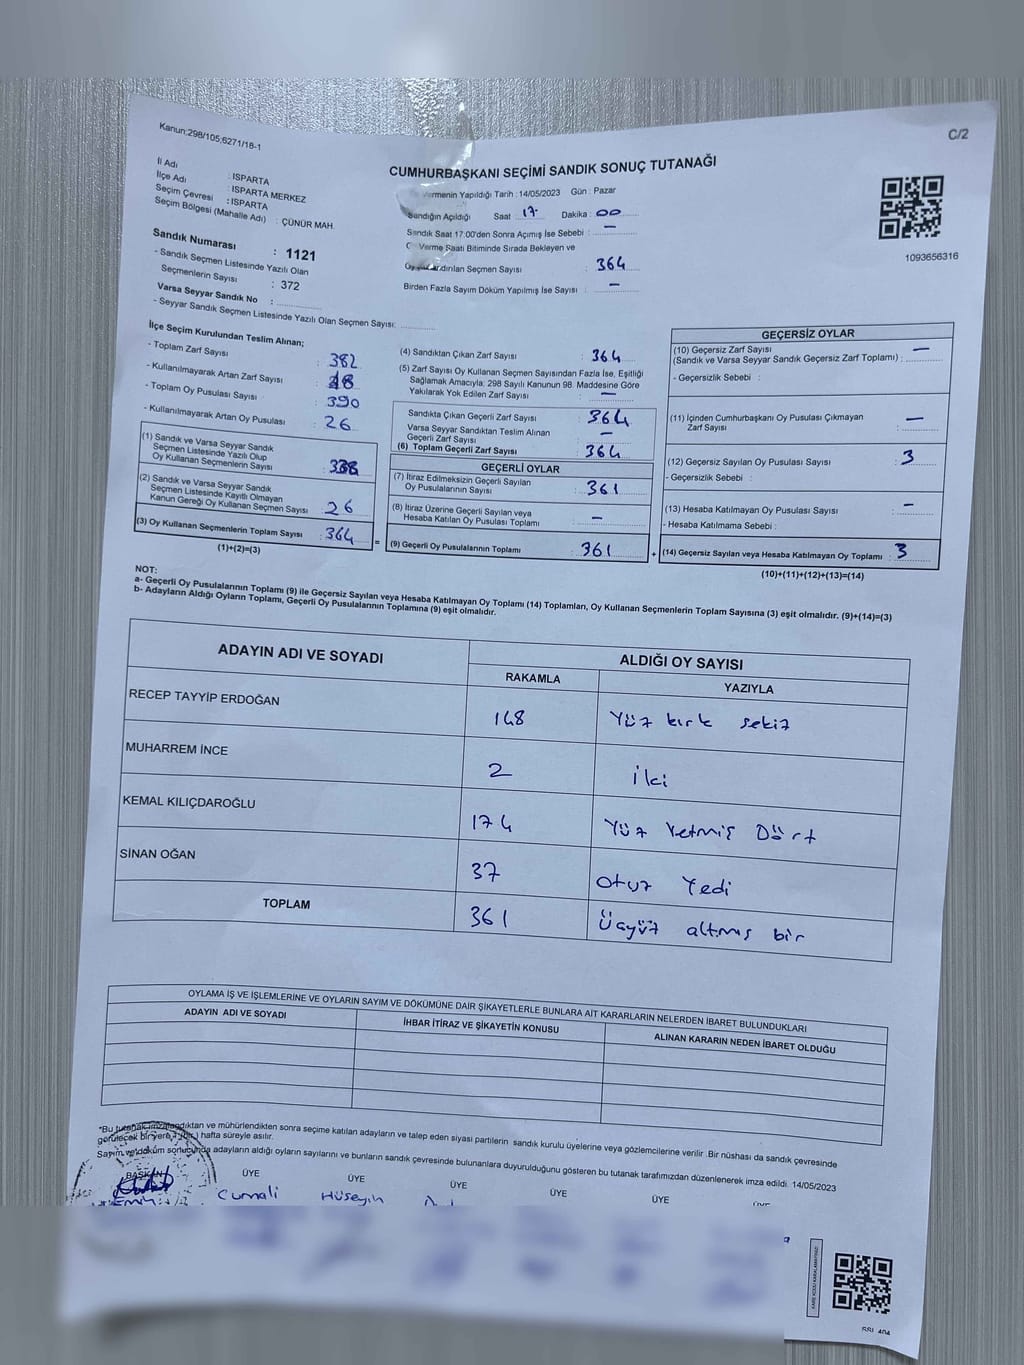 Kanun:298/105,6271/18-1
C/2
CUMHURBAŞKANI SEÇİMİ SANDIK SONUÇ TUTANAĞI
İl Adı : ISPARTA
İlçe Adı : ISPARTA MERKEZ
Seçim Çevresi : ISPARTA
Seçim Bölgesi (Mahalle Adı) : ÇÜNÜR MAH.
Sandık Numarası : 1121
- Sandık Seçmen Listesinde Yazılı Olan
Seçmenlerin Sayısı : 372
Varsa Seyyar Sandık No :
- Seyyar Sandık Seçmen Listesinde Yazılı Olan Seçmen Sayısı:
Vermenin Yapıldığı Tarih : 14/05/2023 Gün : Pazar
Sandığın Açıldığı Saat 17 Dakika : 00
Sandık Saat 17:00'den Sonra Açımış İse Sebebi : –
Verme Saati Bitiminde Sırada Bekleyen ve
Seçmen Sayısı : 364
Birden Fazla Sayım Döküm Yapılmış İse Sayısı : –
1093656316
İlçe Seçim Kurulundan Teslim Alınan;
- Toplam Zarf Sayısı : 382
- Kullanılmayarak Artan Zarf Sayısı : 18
- Toplam Oy Pusulası Sayısı : 390
- Kullanılmayarak Artan Oy Pusulası : 26
(1) Sandık ve Varsa Seyyar Sandık
Seçmen Listesinde Yazılı Olup
Oy Kullanan Seçmenlerin Sayısı : 338
(2) Sandık ve Varsa Seyyar Sandık
Seçmen Listesinde Kayıtlı Olmayan
Kanun Gereği Oy Kullanan Seçmen Sayısı : 26
(3) Oy Kullanan Seçmenlerin Toplam Sayısı : 364
(1)+(2)=(3)
(4) Sandıktan Çıkan Zarf Sayısı : 364
(5) Zarf Sayısı Oy Kullanan Seçmen Sayısından Fazla İse, Eşitliği
Sağlamak Amacıyla; 298 Sayılı Kanunun 98. Maddesine Göre
Yakılarak Yok Edilen Zarf Sayısı : –
Sandıkta Çıkan Geçerli Zarf Sayısı : 364
Varsa Seyyar Sandıktan Teslim Alınan
Geçerli Zarf Sayısı : –
(6) Toplam Geçerli Zarf Sayısı : 364
GEÇERLİ OYLAR
(7) İtiraz Edilmeksizin Geçerli Sayılan
Oy Pusulalarının Sayısı : 361
(8) İtiraz Üzerine Geçerli Sayılan veya
Hesaba Katılan Oy Pusulası Toplamı : –
= (9) Geçerli Oy Pusulalarının Toplamı : 361
GEÇERSİZ OYLAR
(10) Geçersiz Zarf Sayısı –
(Sandık ve Varsa Seyyar Sandık Geçersiz Zarf Toplamı) :
- Geçersizlik Sebebi :
(11) İçinden Cumhurbaşkanı Oy Pusulası Çıkmayan
Zarf Sayısı : –
(12) Geçersiz Sayılan Oy Pusulası Sayısı : 3
- Geçersizlik Sebebi :
(13) Hesaba Katılmayan Oy Pusulası Sayısı : –
- Hesaba Katılmama Sebebi :
+ (14) Geçersiz Sayılan veya Hesaba Katılmayan Oy Toplamı : 3
(10)+(11)+(12)+(13)=(14)
NOT:
a- Geçerli Oy Pusulalarının Toplamı (9) ile Geçersiz Sayılan veya Hesaba Katılmayan Oy Toplamı (14) Toplamları, Oy Kullanan Seçmenlerin Toplam Sayısına (3) eşit olmalıdır. (9)+(14)=(3)
b- Adayların Aldığı Oyların Toplamı, Geçerli Oy Pusulalarının Toplamına (9) eşit olmalıdır.
ADAYIN ADI VE SOYADI
ALDIĞI OY SAYISI
RAKAMLA YAZIYLA
RECEP TAYYİP ERDOĞAN 148 Yüz kırk sekiz
MUHARREM İNCE 2 iki
KEMAL KILIÇDAROĞLU 174 Yüz Yetmiş Dört
SİNAN OĞAN 37 Otuz Yedi
TOPLAM 361 Üçyüz altmış bir
OYLAMA İŞ VE İŞLEMLERİNE VE OYLARIN SAYIM VE DÖKÜMÜNE DAİR ŞİKAYETLERLE BUNLARA AİT KARARLARIN NELERDEN İBARET BULUNDUKLARI
ADAYIN ADI VE SOYADI İHBAR İTİRAZ VE ŞİKAYETİN KONUSU ALINAN KARARIN NEDEN İBARET OLDUĞU
*Bu tutanak imzalandıktan ve mühürlendikten sonra seçime katılan adayların ve talep eden siyasi partilerin sandık kurulu üyelerine veya gözlemcilerine verilir. Bir nüshası da sandık çevresinde
görülecek bir yere 1 (bir) hafta süreyle asılır.
Sayım ve döküm sonucunda adayların aldığı oyların sayılarını ve bunların sandık çevresinde bulunanlara duyurulduğunu gösteren bu tutanak tarafımızdan düzenlenerek imza edildi. 14/05/2023
BAŞKAN ÜYE ÜYE ÜYE ÜYE ÜYE
Cumali Hüseyin